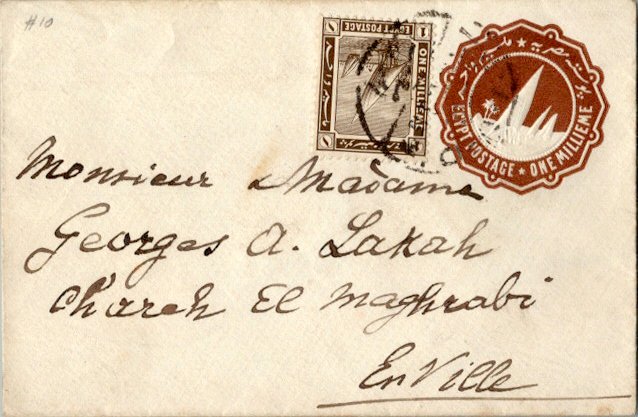 #10
EGYPT POSTAGE
ONE MILLIEME
1
1
EGYPT POSTAGE ★ ONE MILLIEME
Monsieur & Madame
Georges A. Lakah
Chareh El Maghrabi
En Ville